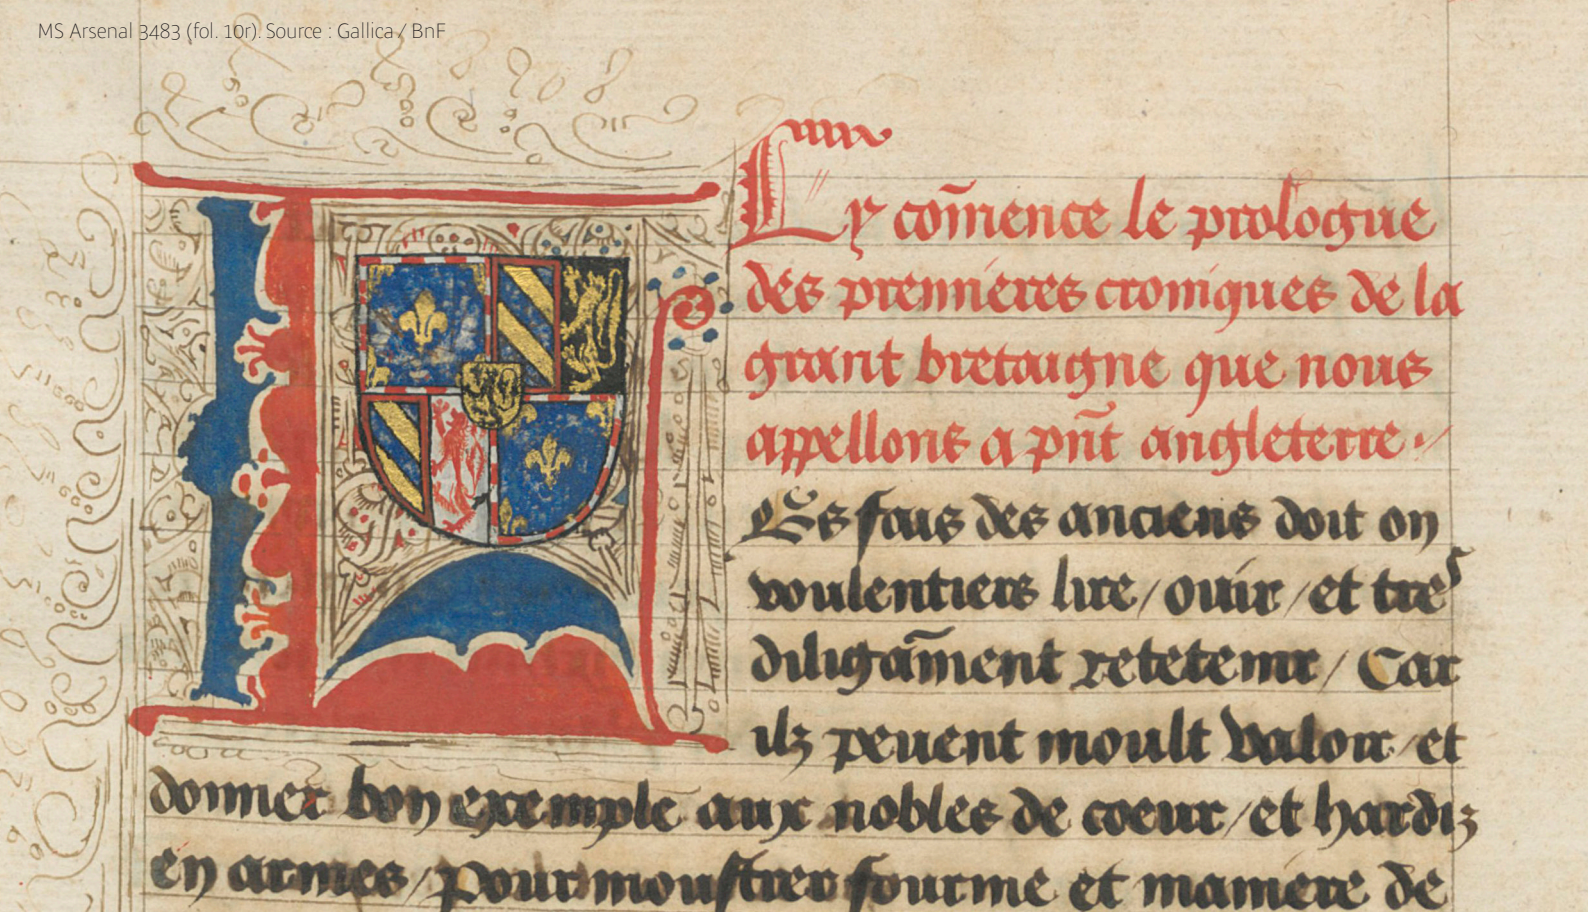 MS Arsenal 3483 (fol. 10r). Source : Gallica / BnF
Cy cõmence le prologue
des premieres croniques de la
grant bretaigne que nous
appellons a pñt angleterre .
Es fais des anciens doit on
voulentiers lire / ouir / et tres
diligãment retetenir / Car
ilz peuent moult valoir / et
donner bon exemple aux nobles de coeur / et hardiz
en armes / pour moustrer fourme et maniere de